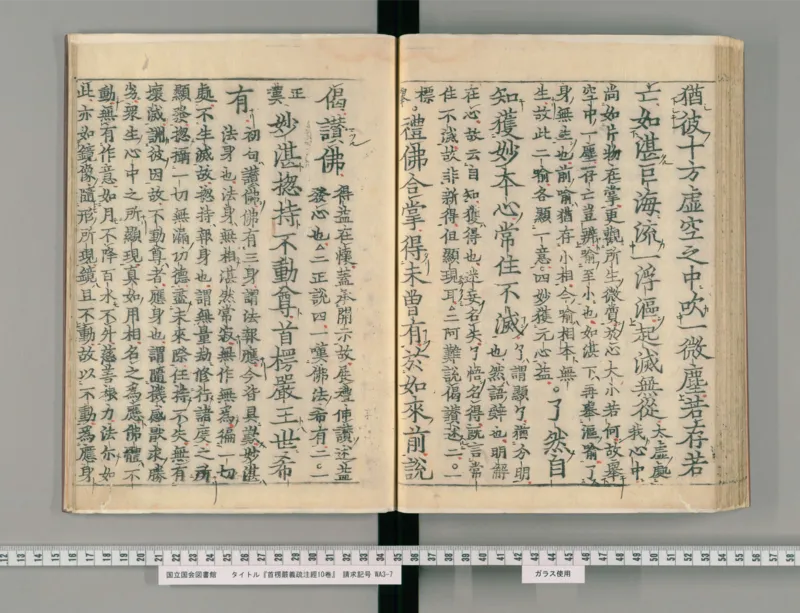 猶彼十方虛空之中吹一微塵若存若
亡如湛巨海流一浮漚起滅無從太虛
我心中
尚如片物在掌更觀所生微質於心大小若何故舉
空中一塵存亡豈辨喻至小也如湛下再舉漚喻了
身無主也前喻猶存小相今喻相本無
生故此二喻各顯一意四妙獲元心益
。了然自
知獲妙本心常住不滅
了謂顯了猶分明
也然語辭也明解
在心故云自知獲得也迷妄名失了悟名得旣言常
住不滅故非新得但顯現耳二阿難說偈讚述二一
標
舉
。禮佛合掌得未曾有於如來前說
偈讚佛
得益在懷蓋承開示故展禮伸讚述益
發心也二正說四一歎佛法希有二一
正
歎
妙湛揔持不動尊首楞嚴王世希
有
初句讚佛佛有三身謂法報應今皆具歎妙湛
法身也法身無相湛然常寂無作無爲徧一切
處不生滅故揔持報身也謂無量劫修行諸度之所
顯發揔攝一切無漏功德盡未來際任持不失無有
壞滅訓彼因故不動尊者應身也謂隨機感獸求勝
衆生心中之所顯現真如用相名之爲應佛體不
動無有作意如月不降百水不升慈善根力法尔如
此亦如鏡像隨形所現鏡且不動故以不動爲應身
国立国会図書館 タイトル『首楞嚴義疏注經10巻』 請求記号 WA3-7
ガラス使用